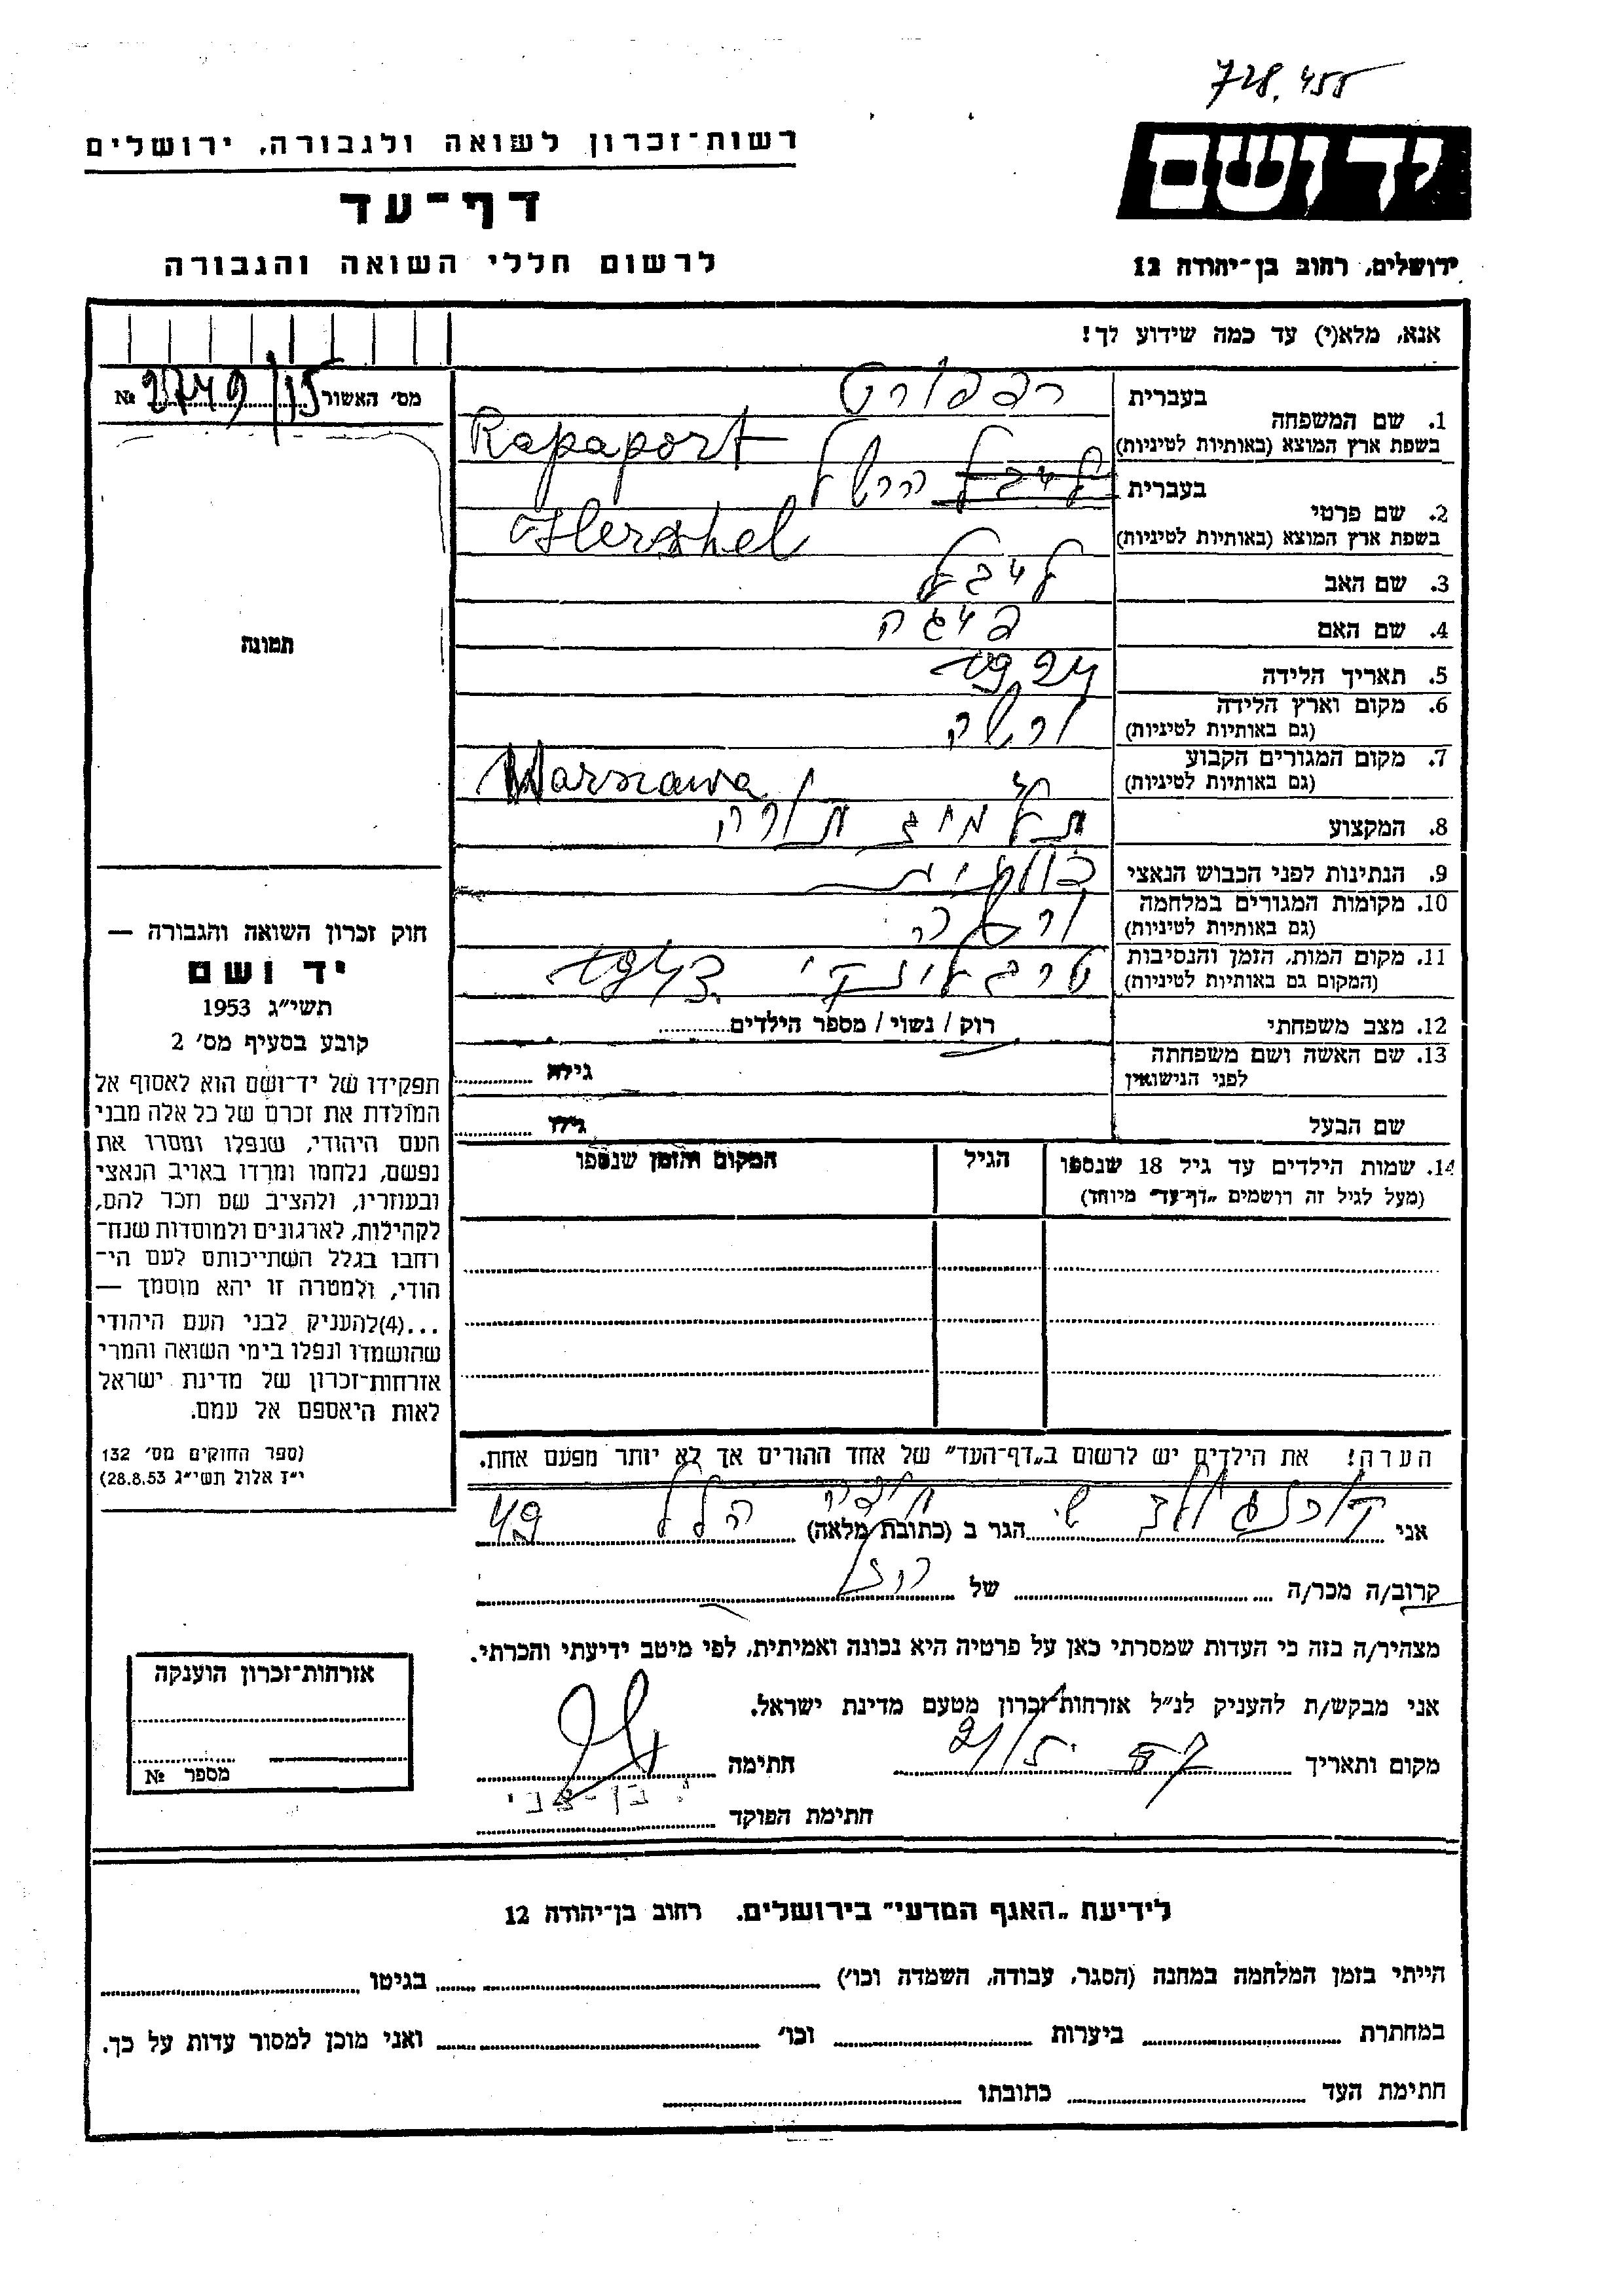 728.455
רשות-זכרון לשואה ולגבורה, ירושלים
יד ושם
דף-עד
לרשום חללי השואה והגבורה
ירושלים, רחוב בן-יהודה 12
אנא, מלא(י) עד כמה שידוע לך!
מס׳ האשור № 2749/15
1. שם המשפחה בעברית רפפורט
בשפת ארץ המוצא (באותיות לטיניות) Rapaport
2. שם פרטי בעברית לייבל הרשל
בשפת ארץ המוצא (באותיות לטיניות) Hershel
3. שם האב לייבל
4. שם האם פייגה
5. תאריך הלידה 1924
6. מקום וארץ הלידה ורשה
(גם באותיות לטיניות)
7. מקום המגורים הקבוע Warszawa
(גם באותיות לטיניות)
8. המקצוע תלמיד תורה
9. הנתינות לפני הכבוש הנאצי פולנית
10. מקומות המגורים במלחמה ורשה
(גם באותיות לטיניות)
11. מקום המות, הזמן והנסיבות טרבלינקי 1943
(המקום גם באותיות לטיניות)
12. מצב משפחתי רוק / נשוי / מספר הילדים
13. שם האשה ושם משפחתה
לפני הנישואין גילה
שם הבעל גילו
14. שמות הילדים עד גיל 18 שנספו הגיל המקום והזמן שנספו
(מעל לגיל זה רושמים „דף-עד״ מיוחד)
הערה! את הילדים יש לרשום ב„דף-העד״ של אחד ההורים אך לא יותר מפעם אחת.
אני הגר ב (כתובת מלאה) הלל 49
קרוב/ה מכר/ה של
מצהיר/ה בזה כי העדות שמסרתי כאן על פרטיה היא נכונה ואמיתית, לפי מיטב ידיעתי והכרתי.
אני מבקש/ת להעניק לנ״ל אזרחות-זכרון מטעם מדינת ישראל.
מקום ותאריך חתימה
חתימת הפוקד י. בן-צבי
תמונה
חוק זכרון השואה והגבורה —
יד ושם
תשי״ג 1953
קובע בסעיף מס׳ 2
תפקידו של יד-ושם הוא לאסוף אל
המולדת את זכרם של כל אלה מבני
העם היהודי, שנפלו ומסרו את
נפשם, נלחמו ומרדו באויב הנאצי
ובעוזריו, ולהציב שם וזכר להם,
לקהילות, לארגונים ולמוסדות שנח-
רחבו בגלל השתייכותם לעם הי-
הודי, ולמטרה זו יהא מוסמך —
...(4)להעניק לבני העם היהודי
שהושמדו ונפלו בימי השואה והמרי
אזרחות-זכרון של מדינת ישראל
לאות היאספם אל עמם.
(ספר החוקים מס׳ 132
י״ז אלול תשי״ג 28.8.53)
אזרחות-זכרון הוענקה
מספר №
לידיעת „האגף המדעי״ בירושלים. רחוב בן-יהודה 12
הייתי בזמן המלחמה במחנה (הסגר, עבודה, השמדה וכו׳) בגיטו
במחתרת ביערות וכו׳ ואני מוכן למסור עדות על כך.
חתימת העד כתובתו